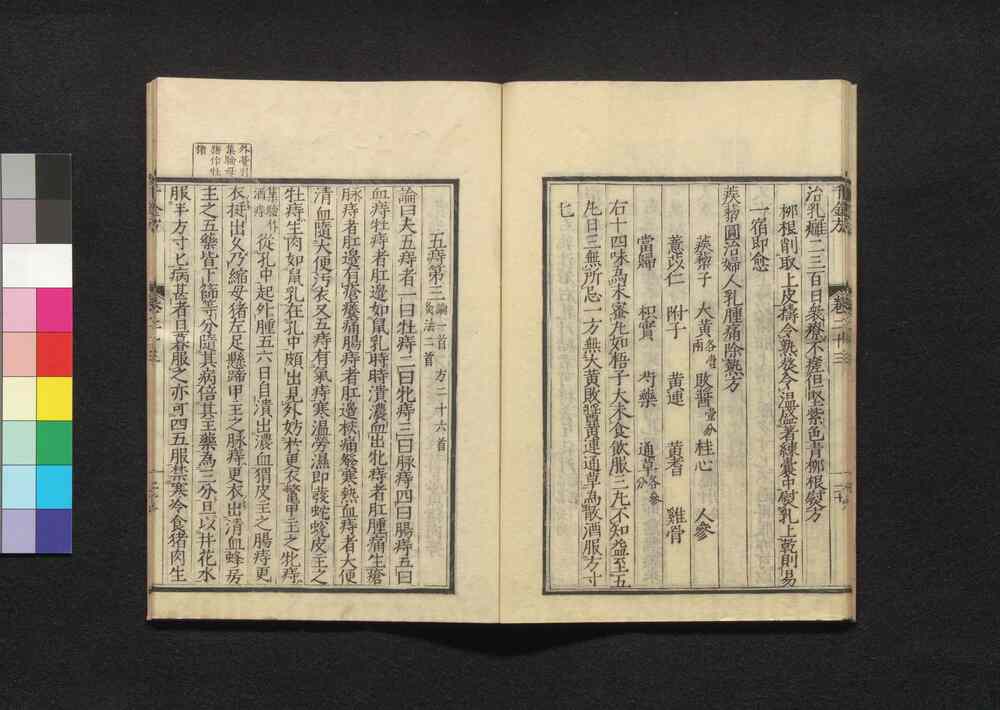 治乳癰二三百日衆療不瘥但堅紫色青柳根熨方
柳根削取上皮擣令熟熬令温盛著練囊中熨乳上乾則易
一宿即愈
蒺藜圓治婦人乳腫痛除熱方
蒺藜子 大黄各壹兩 敗醬壹分 桂心 人參
薏苡仁 附子 黄連 黄耆 雞骨
當歸 枳實 芍藥 通草各參分
右十四味為末蜜丸如梧子大未食飲服三丸不知益至五
丸日三無所忌一方無大黄敗醬黄連通草為散酒服方寸
匕
五痔第三論一首 方二十六首 灸法二首
論曰夫五痔者一曰牡痔二曰牝痔三曰脉痔四曰腸痔五曰
血痔牡痔者肛邊如鼠乳時時潰濃血出牝痔者肛腫痛生瘡
脉痔者肛邊有瘡癢痛腸痔者肛邊核痛發寒熱血痔者大便
清血隨大便汚衣又五痔有氣痔寒温勞濕即發蛇蛻皮主之
牡痔生肉如鼠乳在孔中頗出見外妨於更衣鱉甲主之牝痔
集驗作酒痔從孔中起外腫五六日自潰出濃血猬皮主之腸痔更
衣挺出久乃縮母猪左足懸蹄甲主之脉痔更衣出清血蜂房
主之五藥皆下篩等分隨其病倍其主藥為三分旦以井花水
服半方寸匕病甚者旦暮服之亦可四五服禁寒冷食猪肉生